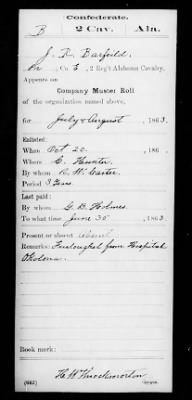 Confederate.
B 2 Cav. Ala.
J. R. Barfield
Co. E, 2 Reg't Alabama Cavalry.
Appears on
Company Muster Roll
of the organization named above,
for July & August, 1863.
Enlisted:
When Oct 20, 186
Where C. Hunter
By whom R. W. Carter
Period 3 Years
Last paid:
By whom G. B. Holmes
To what time June 30, 1863.
Present or absent absent
Remarks: Furloughed from Hospital
Okolona.
Book mark:
H. W. Throckmorton
(642) Copyist.